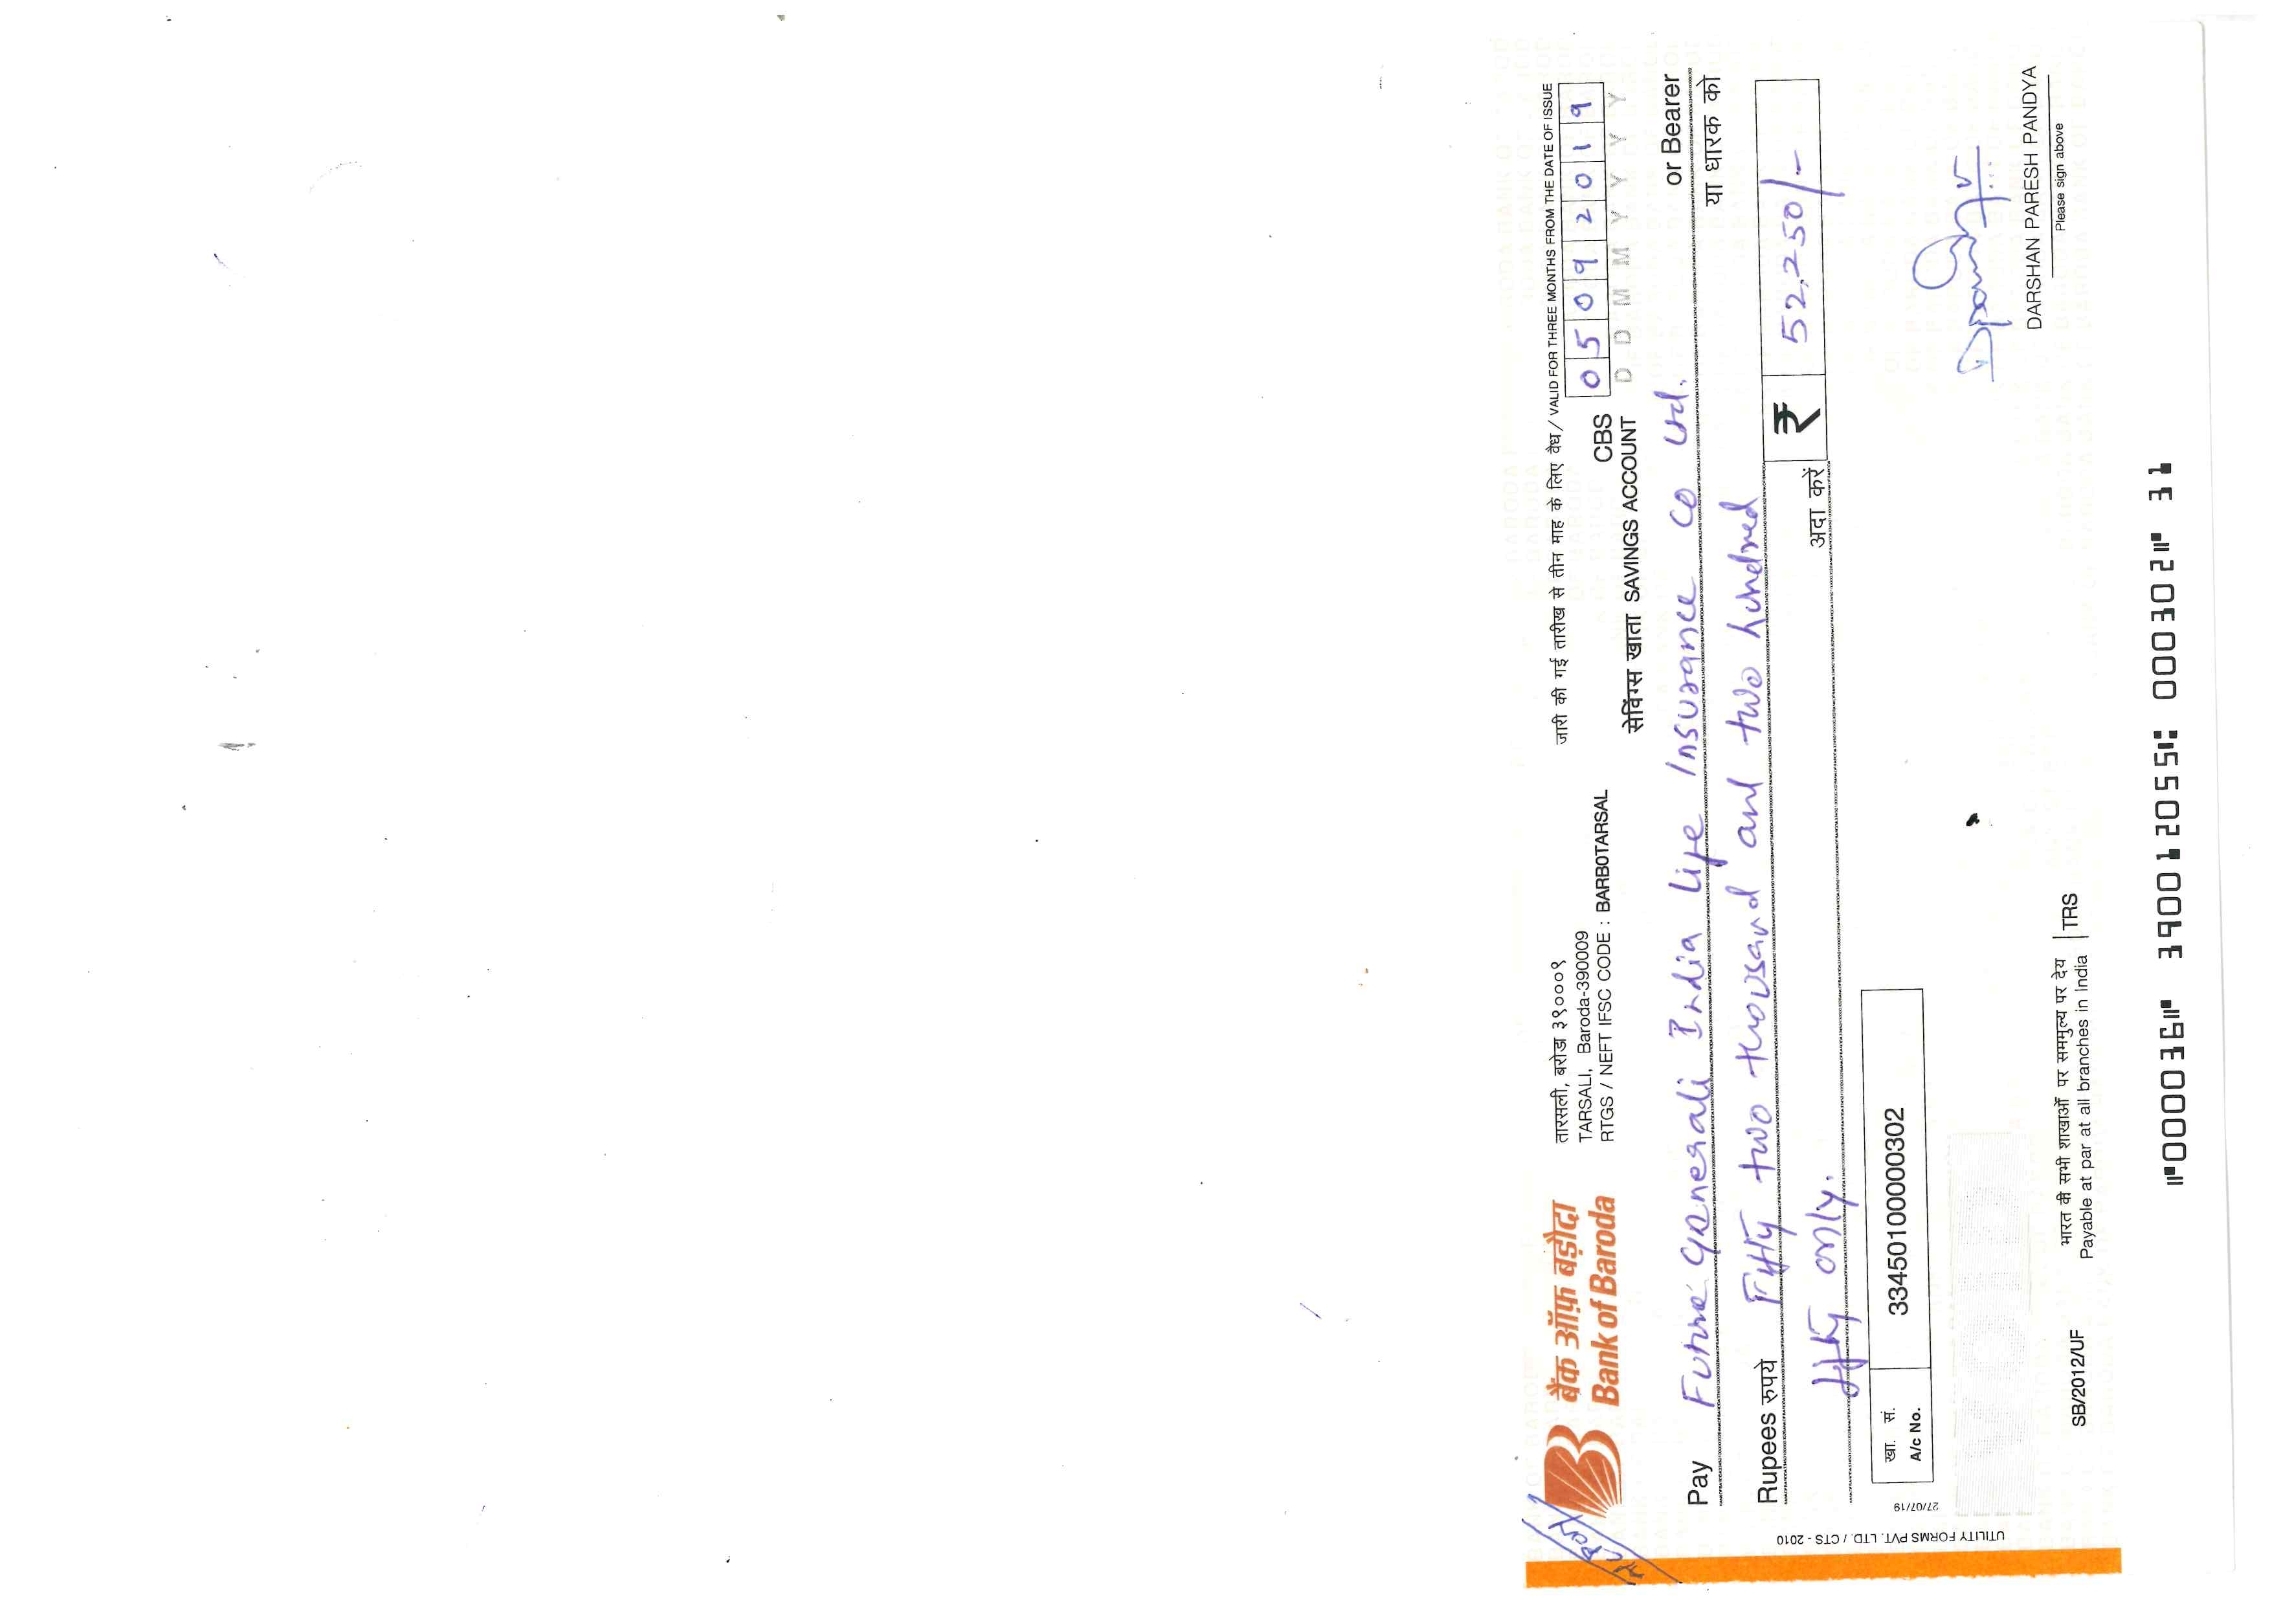 बैंक ऑफ़ बड़ौदा
Bank of Baroda
तारसली, बरोडा ३९०००९
TARSALI, Baroda-390009
RTGS / NEFT IFSC CODE : BARB0TARSAL
जारी की गई तारीख से तीन माह के लिए वैध / VALID FOR THREE MONTHS FROM THE DATE OF ISSUE
0 5 0 9 2 0 1 9
D D M M Y Y Y Y
CBS
सेविंग्स खाता SAVINGS ACCOUNT
Pay Future Generali India Life Insurance Co Ltd. or Bearer
या धारक को
Rupees रुपये Fifty two thousand and two hundred
fifty only. अदा करें
₹ 52,250/-
खा. सं.
A/c No. 33450100000302
DARSHAN PARESH PANDYA
Please sign above
SB/2012/UF
भारत की सभी शाखाओं पर सममुल्य पर देय
Payable at par at all branches in India
TRS
27/07/19
UTILITY FORMS PVT. LTD. / CTS - 2010
⑈000036⑈ 390012055⑆ 000302⑈ 31